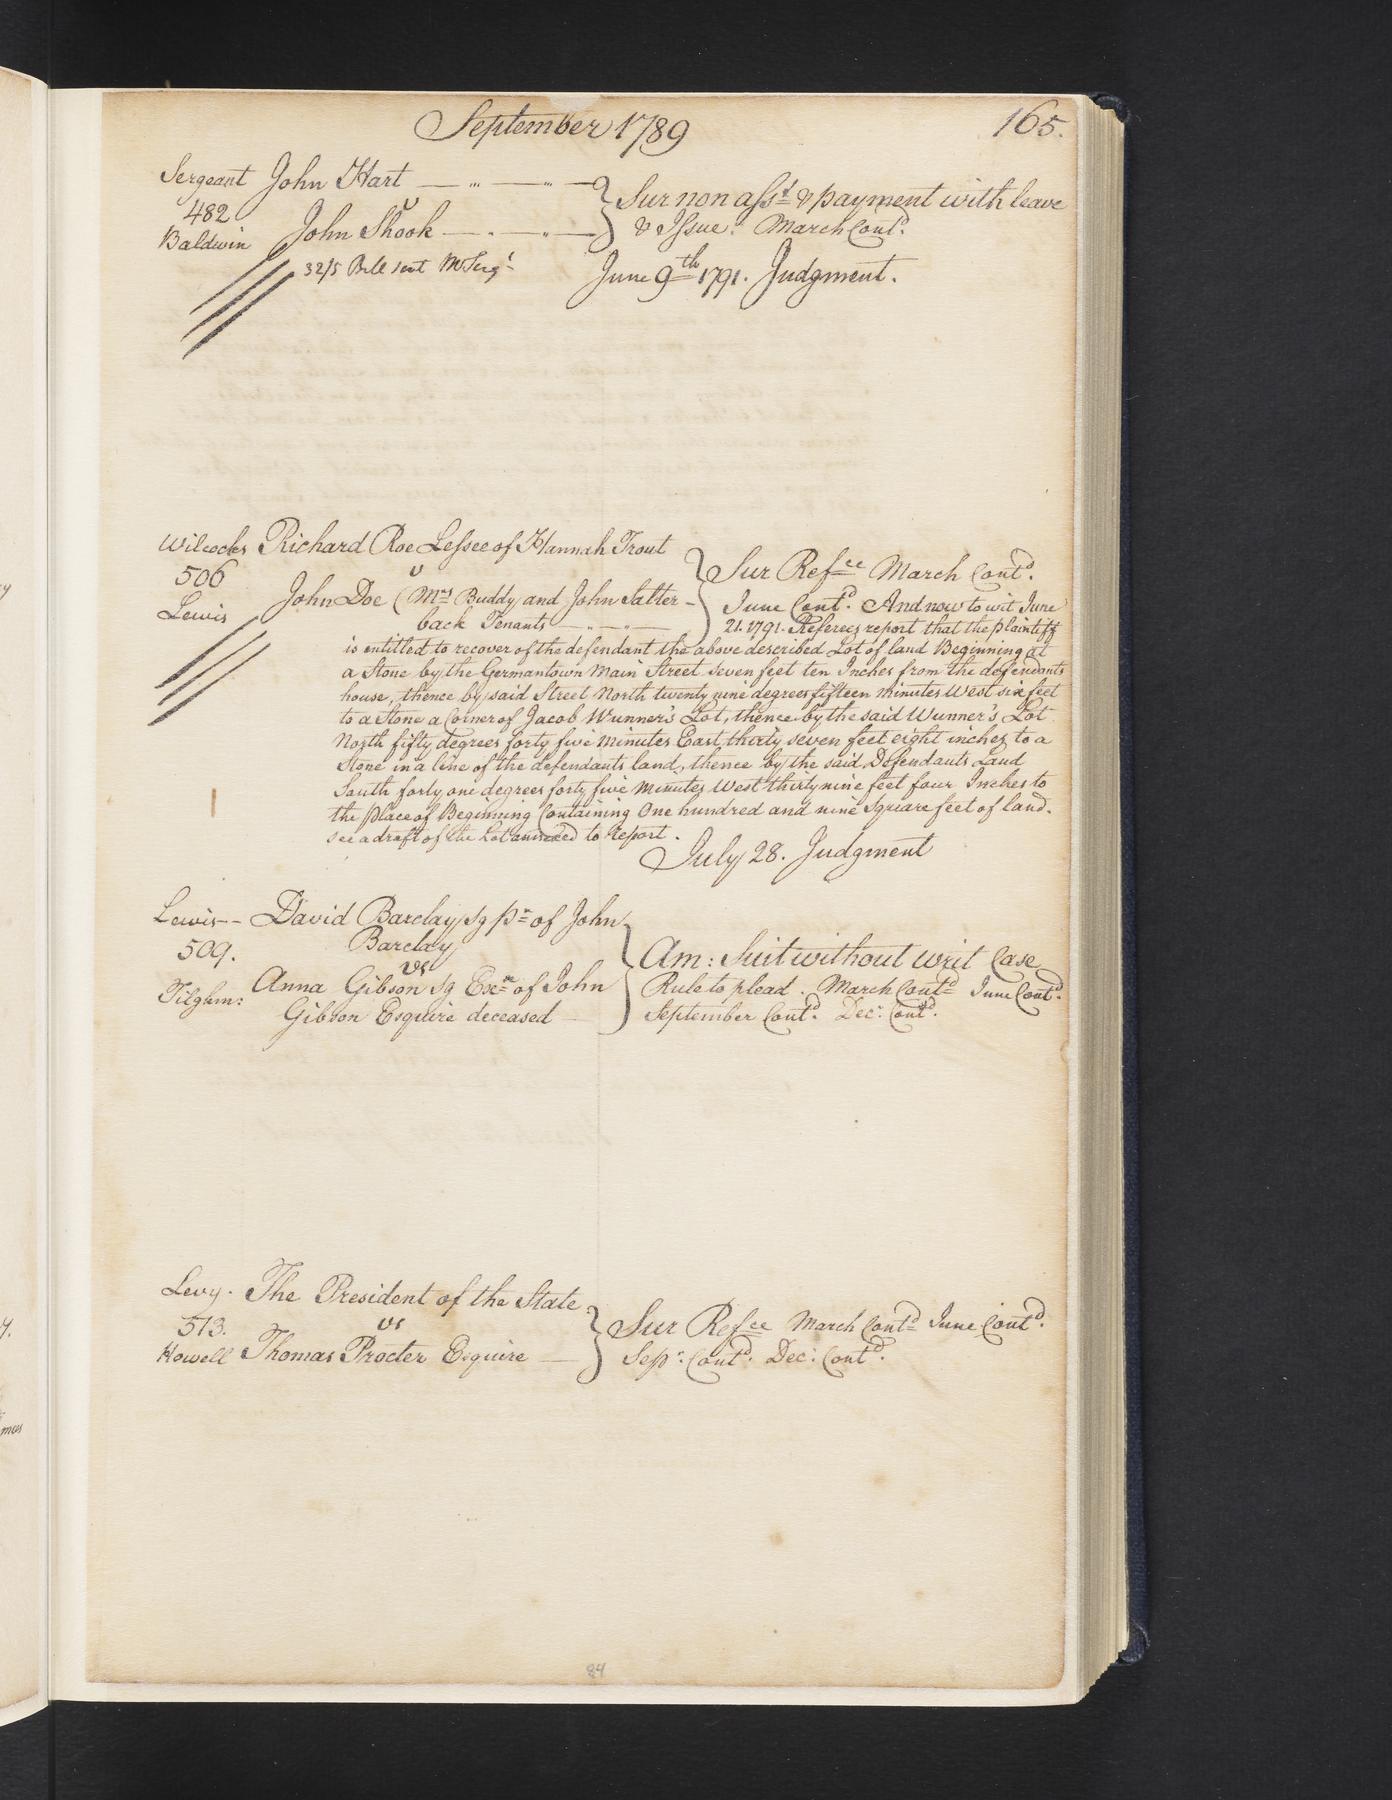 September 1789
165.
Sergeant John Hart
482 v
Baldwin John Shook
32/5 Bill sent Mr Serg.t
Sur non asst & payment with leave
& Issue. March Cont.d
June 9th 1791. Judgment.
Wilcocks Richard Roe Lessee of Hannah Trout
506 v
Lewis John Doe (Mrs Buddy and John Satter-
back Tenants
Sur Refce March Cont.d
June Cont.d And now to wit June
21. 1791. Referees report that the plaintiff
is entitled to recover of the defendant the above described Lot of land Beginning at
a Stone by the Germantown Main Street seven feet ten Inches from the defendants
house, thence by said Street North twenty nine degrees fifteen minutes West six feet
to a Stone a Corner of Jacob Wunner's Lot, thence by the said Wunner's Lot
North fifty degrees forty five minutes East thirty seven feet eight inches to a
Stone in a line of the defendants land, thence by the said Defendants Land
South forty one degrees forty five minutes West thirty nine feet four Inches to
the place of Beginning Containing One hundred and nine Square feet of land.
see a draft of the Lot annexed to report.
July 28. Judgment
Lewis David Barclay sg pr of John
509. Barclay
vs
Tilghm: Anna Gibson sg Exx of John
Gibson Esquire deceased
Am: Suit without writ Case
Rule to plead. March Contd June Cont.d
September Cont.d Dec: Cont.d
Levy. The President of the State
513. vs
Howell Thomas Procter Esquire
Sur Refce March Contd June Cont.d
Sepr. Cont.d Dec: Cont.d
84